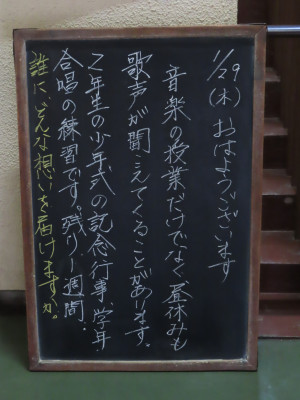 1/29(木) おはようございます
音楽の授業だけでなく昼休みも
歌声が聞こえてくることがあります。
2年生の少年式の記念行事、学年
合唱の練習です。残り1週間。
誰に、どんな想いを届けますか。